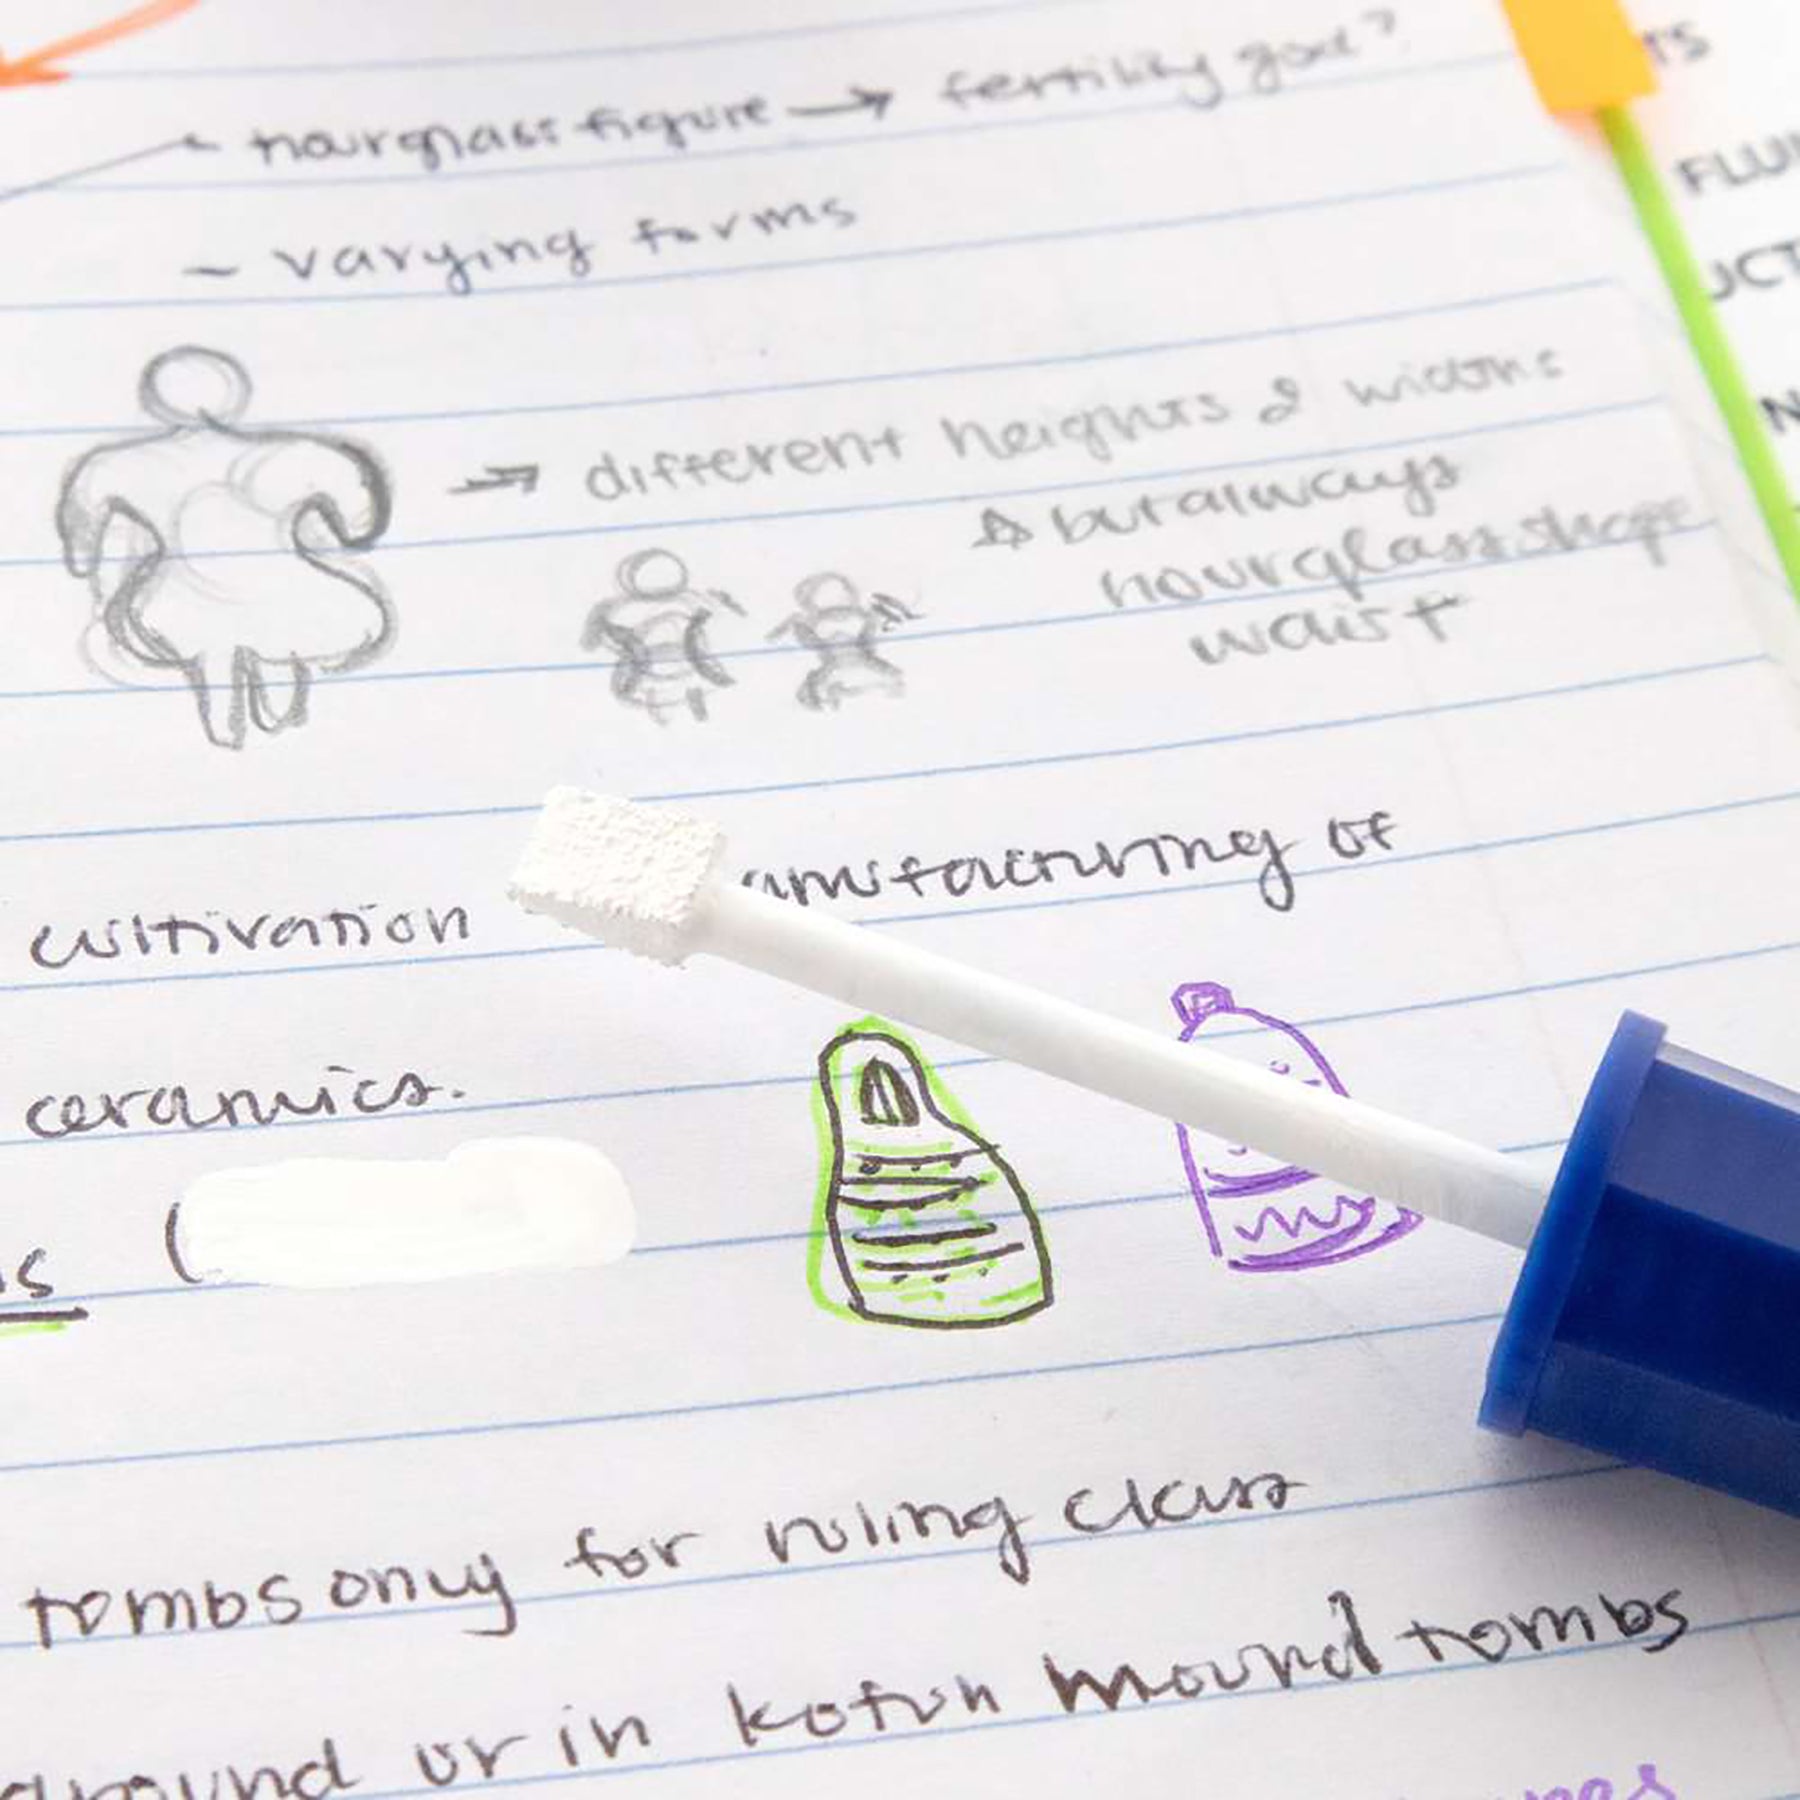 hourglass figure → fertility god?
– varying forms
→ different heights & widths
☆ but always
hourglass shape
waist
cultivation
of
ceramics.
(
tombs only for ruling class
ground or in kofun mound tombs
FLUI
UCT